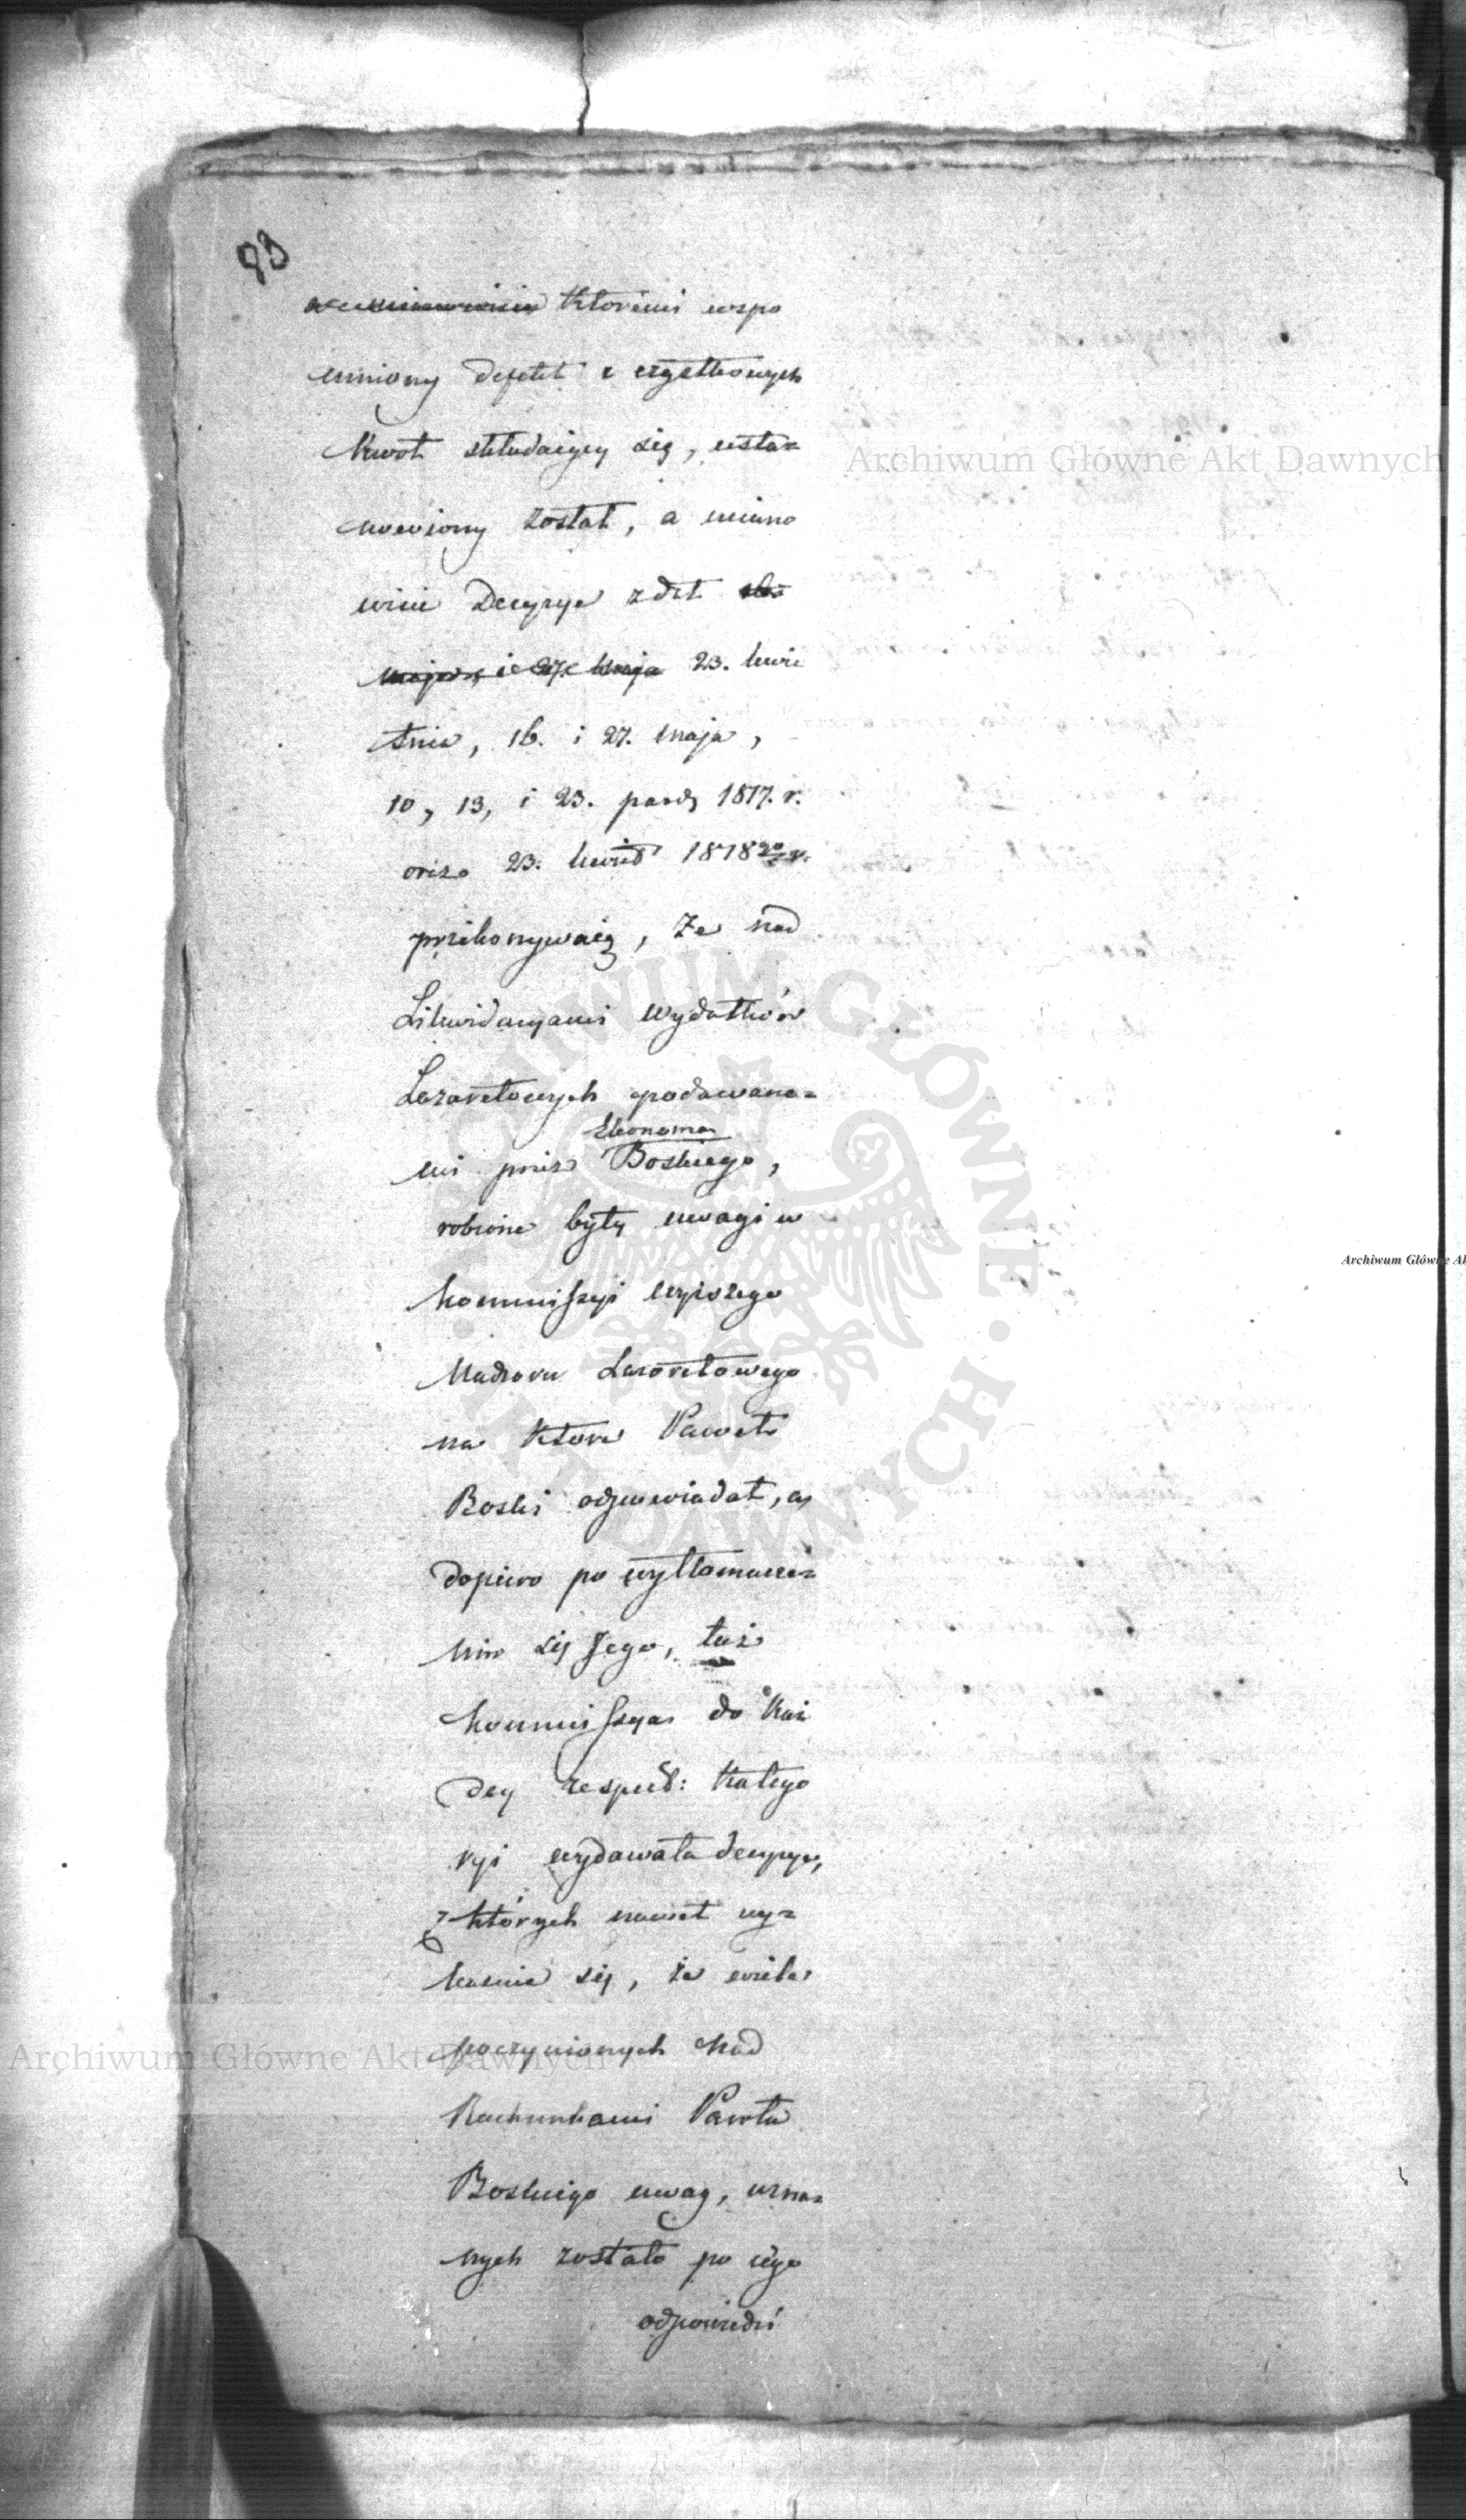 93
którémi wspo
mniony defekt z cząstkowych
kwot składaiący się, usta=
nowiony został, a miano
wicie Decyzye z dat
maja 23. kwie
tnia, 16. i 27. maja,
10, 13, i 23. paźd. 1817. r.
oraz 23. kwiet 1818 r.
przekonywaią, że nad
Likwidacyami wydatków
Lazaretowych podawane=
Ekonoma
mi przez Boskiego,
robione były uwagi w
Kommissyi wyższego
Nadzoru Lazaretowego
na które Paweł
Boski odpowiadał, a
dopiero po wytłomacze=
niu się Jego, taż
Kommissya do Każ
dey respect: Katego
ryi wydawała decyzye,
z których nawet wy=
kazuie się, że wiele
poczynionych nad
Rachunkami Pawła
Boskiego uwag, uzna=
nych zostało po iego
odpowiedzi
Archiwum Główne Akt Dawnych
Archiwum Główne Akt Dawnych
ARCHIWUM GŁÓWNE AKT DAWNYCH
Archiwum Główne Ak